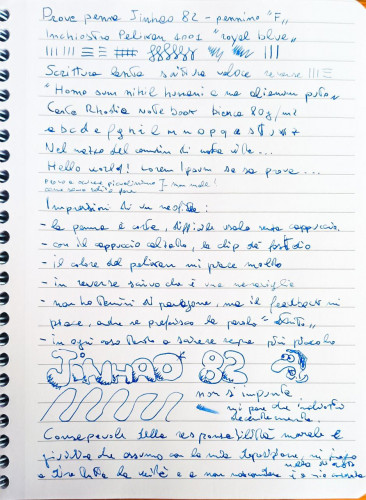 Prova penna Jinhao 82 - pennino "F"
Inchiostro Pelikan 4001 "royal blue"
Scrittura lenta scrittura veloce reverse
"Homo sum nihil humani a me alienum puto"
Carta Rhodia Note book bianca 80g/m2
a b c d e f g h i l m n o p q r s t u v z
Nel mezzo del cammin di nostra vita...
Hello world! Lorem Ipsum se sa prova...
Impressioni di un neofita:
- la penna è corta, difficile usarla senza cappuccio.
- con il cappuccio calzato, la clip dà fastidio
- il colore del pelikan mi piace molto
- in reverse scrivo che è una meraviglia
- non ho termini di paragone, ma il feedback mi
piace, anche se preferisco la parola "
- in ogni caso tendo a scrivere sempre più piccolo
JINHAO 82
non s'impunta
mi pare che inchiostri
decentemente.
Consapevole della responsabilità morale e
giuridica che assumo con la mia deposizione, mi impegno
a dire tutta la verità e a non nascondere